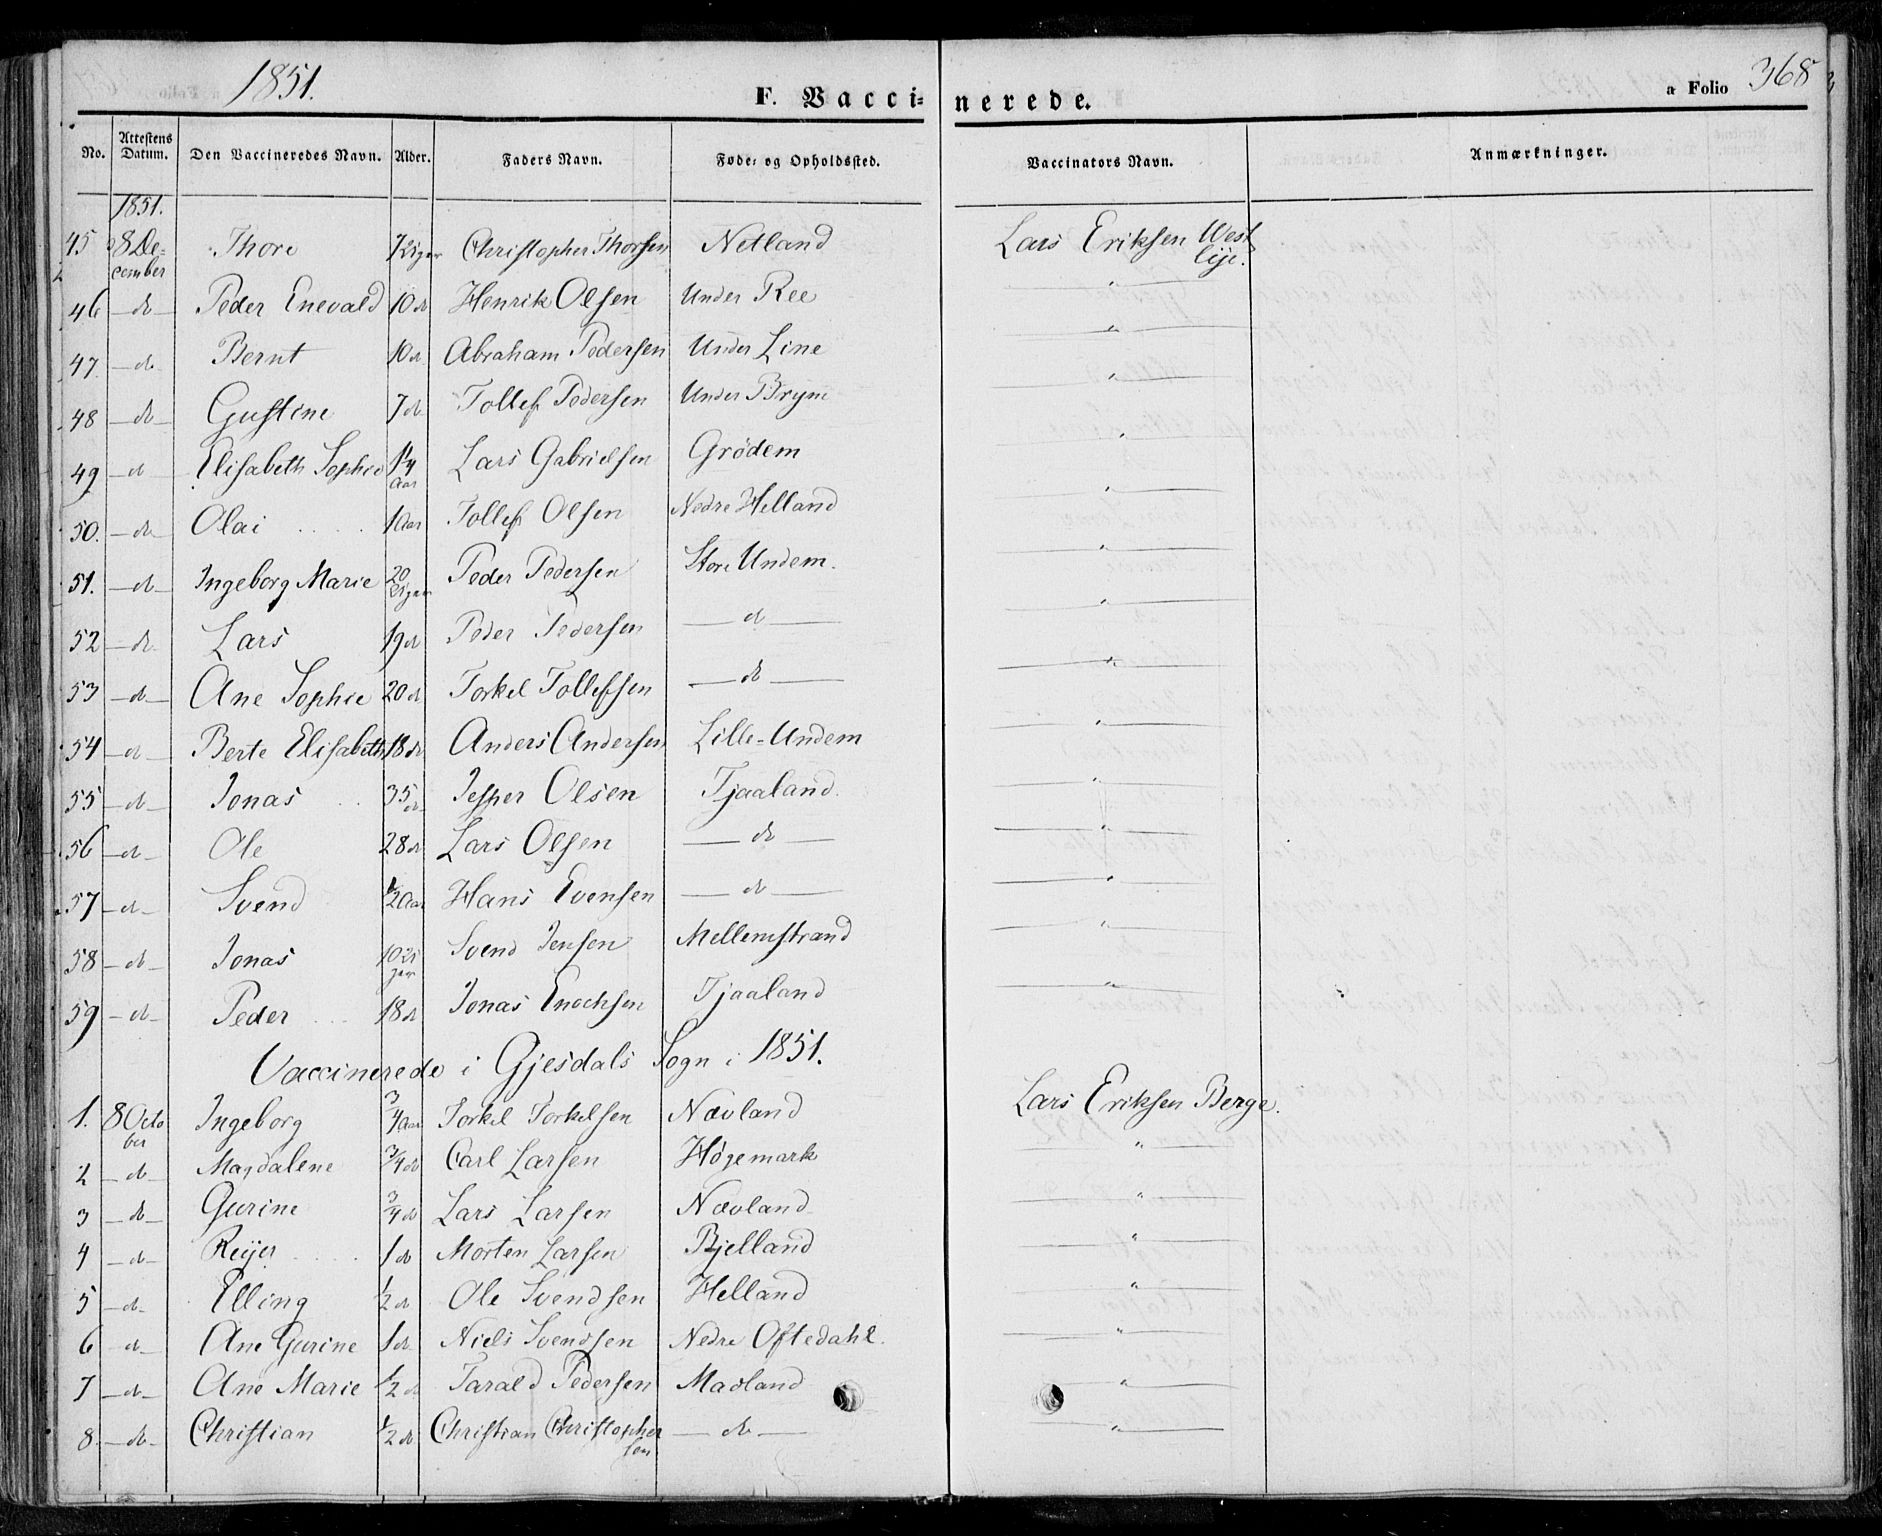 1851. F. Vacci- nerede. a Folio 368
No. Attestens Datum. Den Vaccineredes Navn. Alder. Faders Navn. Føde- og Opholdssted. Vaccinators Navn. Anmærkninger.
1851.
45 8 De-cember Thore 7 Uger Christopher Thorsen Netland Lars Eriksen Westlye.
46 do Peder Enevald 10 do Henrik Olsen Under Ree "
47. do Bernt 10 do Abraham Pedersen Under Line "
48 do Gustine 7 do Tollef Pedersen Under Bryne "
49 do Elisabeth Sophie 1/4 Aar Lars Gabrielsen Grødem "
50. do Olai 1 Aar Tollef Olsen Nedre Helland "
51. do Ingeborg Marie 20 Uger Peder Pedersen Store Undem. "
52 do Lars 19 do Peder Pedersen do "
53 do Ane Sophie 20 do Torkel Tollefsen do "
54 do Berte Elisabeth 18 do Anders Andersen Lille-Undem "
55 do Jonas 35 do Jesper Olsen Tjaaland. "
56 do Ole 28 do Lars Olsen do "
57 do Svend 1/2 Aar Hans Evensen do "
58 do Jonas 10 Uger Svend Jensen Mellemstrand "
59 do Peder 18 do Jonas Enochsen Tjaaland "
Vaccinerede i Gjesdals Sogn i 1851.
1. 8 October Ingeborg 3/4 Aar Torkel Torkelsen Nævland Lars Eriksen Berge.
2 do Magdalene 3/4 do Carl Larsen Høgemark "
3 do Gurine 3/4 do Lars Larsen Nævland "
4 do Reijer 1 do Morten Larsen Bjelland "
5 do Elling 1/2 do Ole Svendsen Helland "
6 do Ane Gurine 1 do Niels Svendsen Nedre Oftedahl. "
7 do Ane Marie 1/2 do Tarald Pedersen Madland "
8. do Christian 1/2 do Christian Christophersen do "